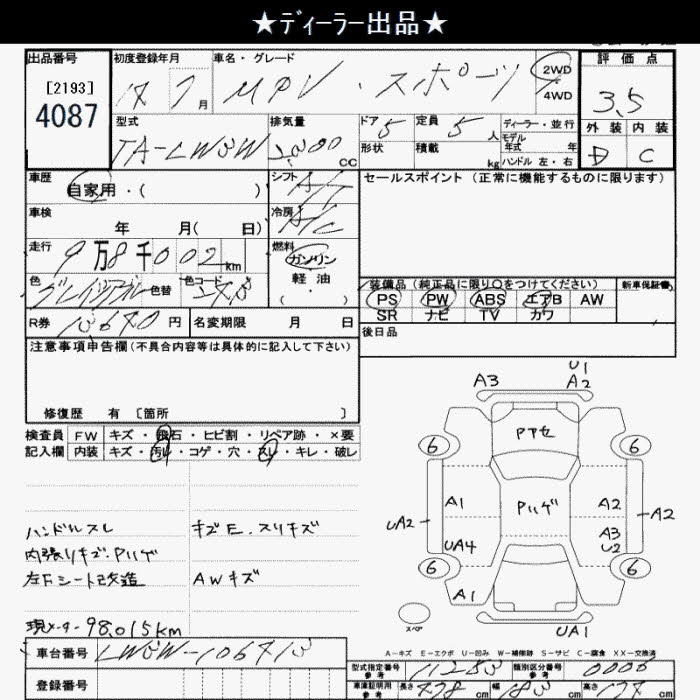 ★ディーラー出品★
出品番号
[2193]
4087
初度登録年月
7月
車名・グレード
MPV・スポーツ
2WD
4WD
評価点
3.5
外装 内装
D C
型式
TA-LW3W
排気量
cc
ドア 5
形状
定員 5人
積載 kg
ディーラー・並行
モデル年式 年
ハンドル 左・右
車歴
自家用・( )
シフト
A/T
車検
年 月( 日)
冷房
A/C
走行
9万8千002km
燃料
ガソリン
軽油
( ・ )
色
色替
色コード
R券
13640円
名変期限 月 日
セールスポイント (正常に機能するものに限ります)
装備品(純正品に限り○をつけてください)
新車保証書
PS PW ABS エアB AW
SR ナビ TV カワ
後日品
注意事項申告欄(不具合内容等は具体的に記入して下さい)
修復歴 有 〔箇所 〕
検査員記入欄
FW キズ・飛石・ヒビ割・リペア跡・×要
内装 キズ・汚レ・コゲ・穴・スレ・キレ・破レ
ハンドルスレ
内張リキズ.Pハゲ
左Fシート改造
キズE.スリキズ
AWキズ
現メーター98,015km
A3
U1
A2
Pアセ
6
6
Pハゲ
UA2
A1
UA4
A2
A3
U2
A2
6
6
A1
スペア
UA1
A－キズ E－エクボ U－凹み W－補修跡 S－サビ C－腐食 XX－交換済
車台番号
LW3W-106413
登録番号
型式指定番号
参考
11253
類別区分番号
参考
0006
車庫証明用
参考
長さ
cm
幅 183 cm
高さ
cm